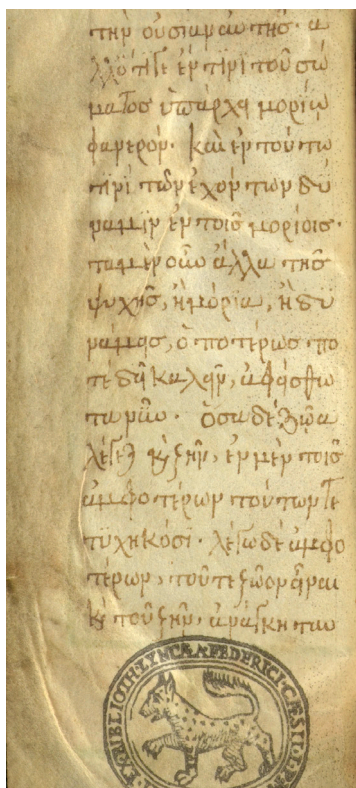 τὴν οὐσίαν αὐτῆς· ἀ
λλ' ὅτι γε ἔν τινι τοῦ σώ
ματος ὑπάρχει μορίω
φανερόν· καὶ ἐν τούτω
τινὶ τῶν ἐχόντων δύ
ναμιν ἐν τοῖς μορίοις·
τὰ μὲν οὖν ἄλλα τῆς
ψυχῆς, ἢ μόρια, ἢ δυ
νάμεις, ὁποτέρως πο
τὲ δεῖ καλεῖν, ἀφείσθω
τὰ νῦν· ὅσα δὲ ζῶα
λέγεται καὶ ζῆν, ἐν μὲν τοῖς
ἀμφοτέρων τούτων τε
τυχηκόσι· λέγω δὲ ἀμφο
τέρων, τοῦ τε ζῶον εἶναι
καὶ τοῦ ζῆν, ἀνάγκη ταυ
EX BIBLIOTH LYNCÆA FEDERICI CÆSII